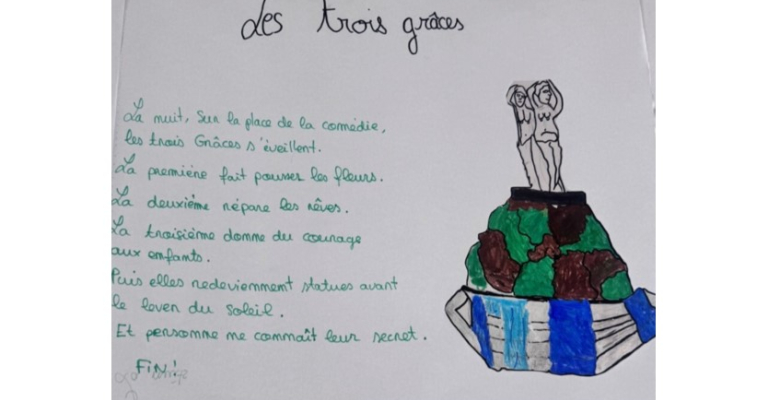 Les trois grâces
La nuit, sur la place de la comédie,
les trois Grâces s'éveillent.
La première fait pousser les fleurs.
La deuxième répare les rêves.
La troisième donne du courage
aux enfants.
Puis elles redeviennent statues avant
le lever du soleil.
Et personne ne connaît leur secret.
FIN!